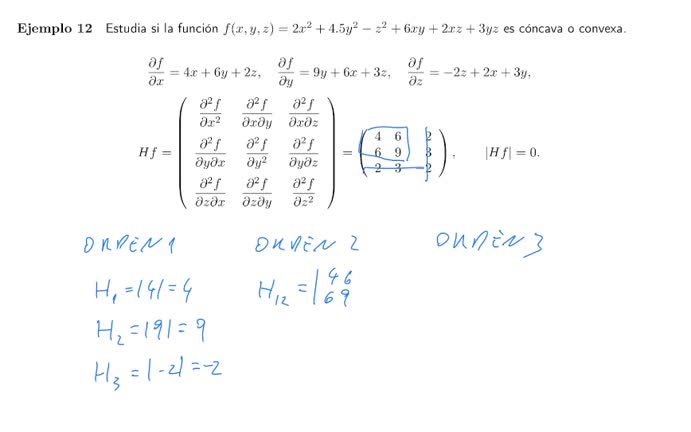 Ejemplo 12 Estudia si la función f(x, y, z) = 2x² + 4.5y² − z² + 6xy + 2xz + 3yz es cóncava o convexa.
∂f/∂x = 4x + 6y + 2z, ∂f/∂y = 9y + 6x + 3z, ∂f/∂z = −2z + 2x + 3y,
∂²f/∂x² ∂²f/∂x∂y ∂²f/∂x∂z 4 6 2
Hf = ∂²f/∂y∂x ∂²f/∂y² ∂²f/∂y∂z = 6 9 3 , |Hf| = 0.
∂²f/∂z∂x ∂²f/∂z∂y ∂²f/∂z² 2 3 −2
ORDEN 1 ORDEN 2 ORDEN 3
H₁ = |4| = 4 H₁₂ = | 4 6
6 9
H₂ = |9| = 9
H₃ = |-2| = -2